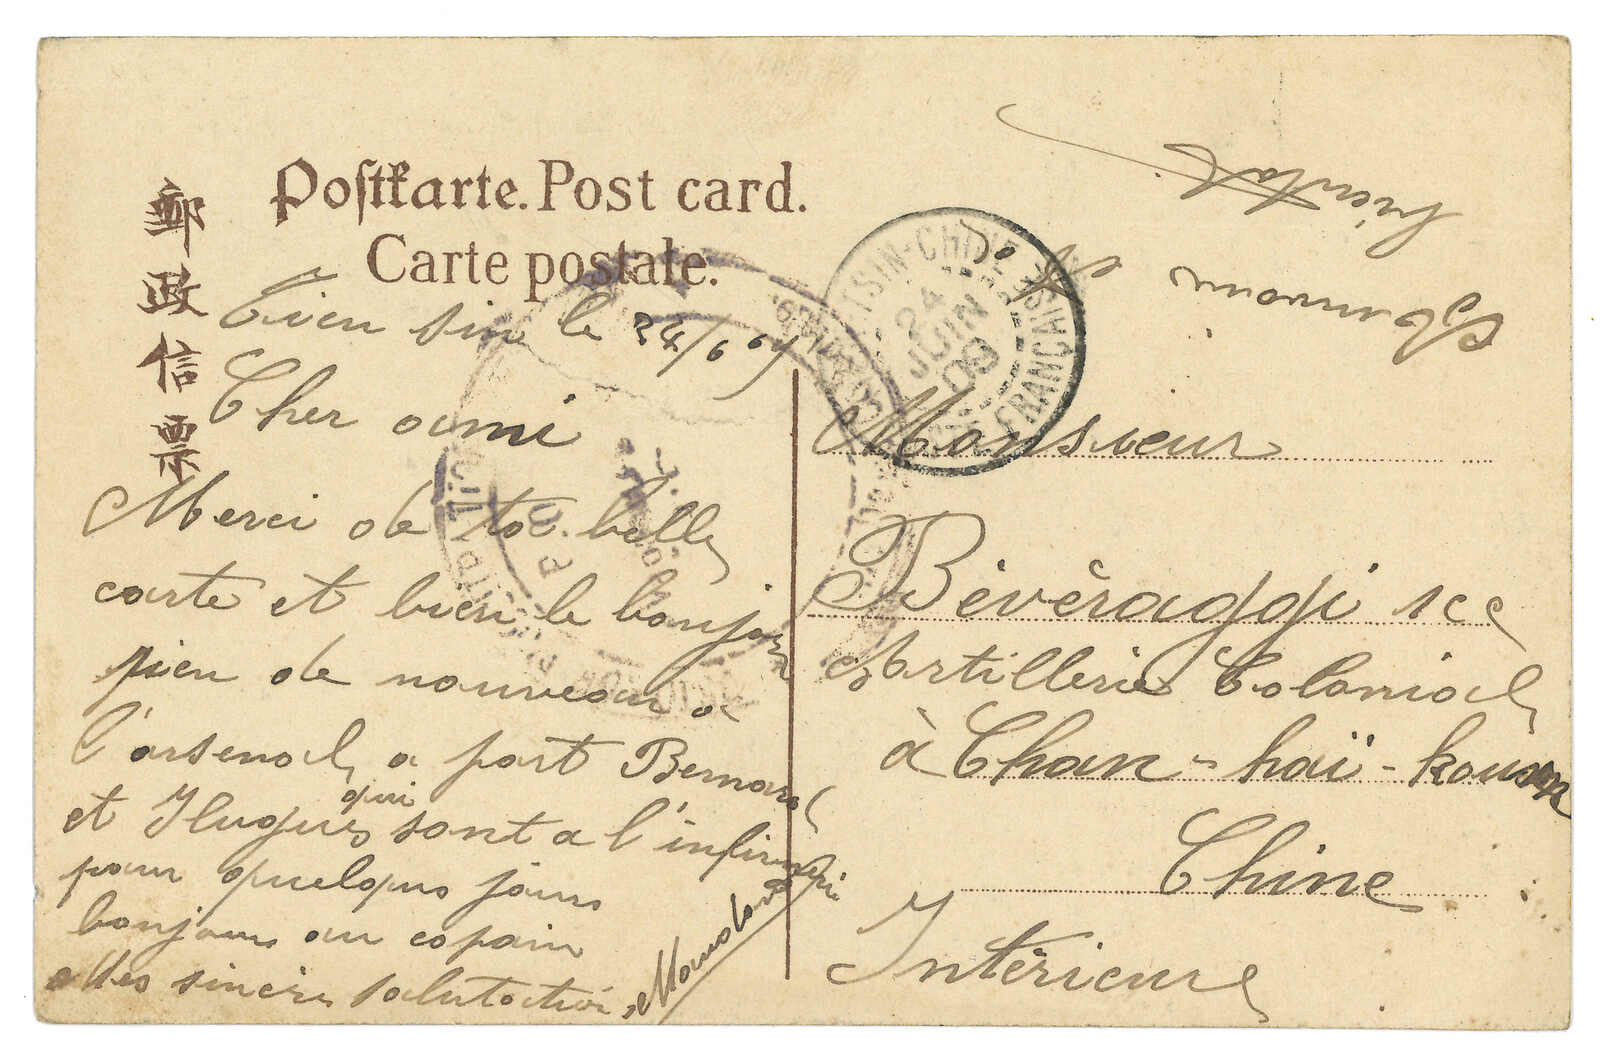 郵政信票
Postkarte. Post card.
Carte postale.
Tien sin le 24/6 09
Cher ami
Merci de ta belle
carte et bien le bonjour
rien de nouveau a
l'arsenal, a part Bernard
et Hugues qui sont a l'infirmerie
pour quelques jours
bonjour au copain
Mes sincères salutations
TSIN-CHINE
24
JUIN
09
FRANÇAISE
Monsieur
Bévéraggi
Artillerie Coloniale
à Chan-haï-kouan
Chine
Intérieure